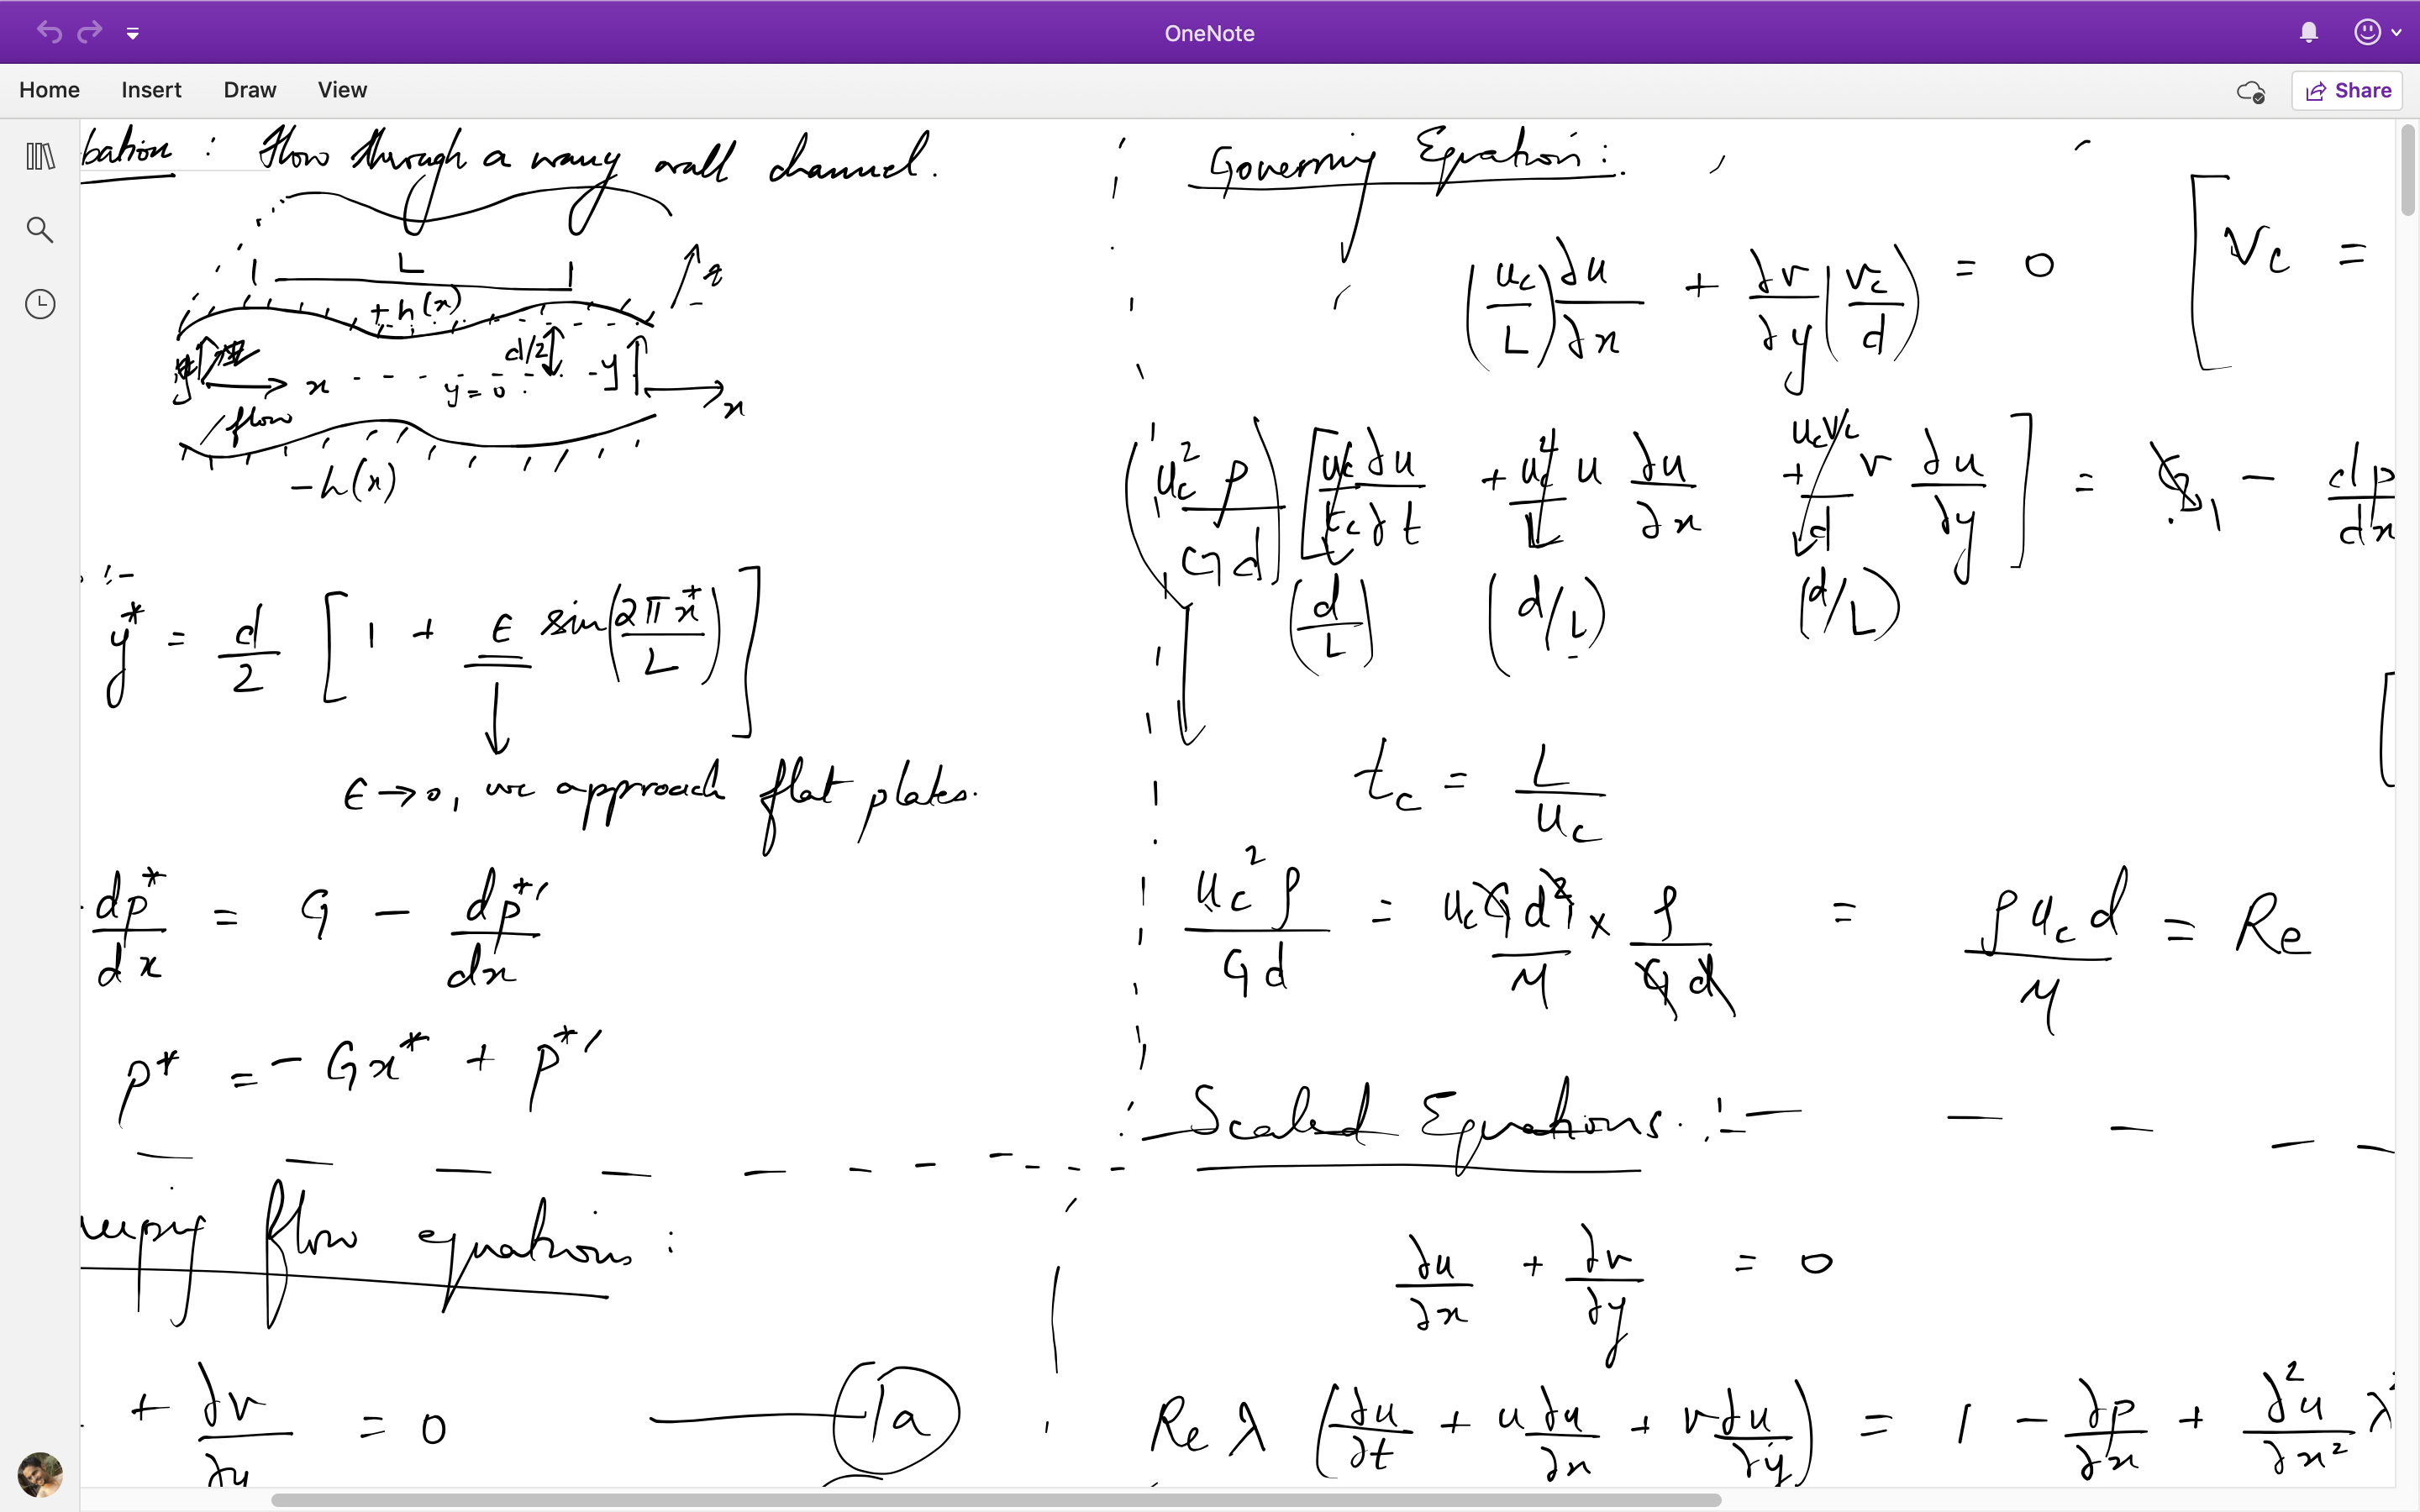 OneNote
Home Insert Draw View
Share
bation : flow through a wavy wall channel.
L
z
+h(x)
d/2
y
x
y=0
x
flow
-h(x)
:-
y* = d/2 [1 + ε sin(2πx*/L)]
ε→0, we approach flat plates.
dp*/dx = G - dp*'/dx
p* = -Gx* + p*'
flow equations :
+ ∂v/∂y = 0
1a
Governing Equation:
(uc/L) ∂u/∂x + ∂v/∂y (vc/d) = 0
[vc =
(uc²ρ/Gd) [uc/tc ∂u/∂t + uc²/L u ∂u/∂x + ucvc/d v ∂u/∂y] = G, - dp/dx
(d/L) (d/L) (d/L)
tc = L/uc
uc²ρ/Gd = ucGd²/μ × ρ/Gd = ρucd/μ = Re
Scaled Equations :-
∂u/∂x + ∂v/∂y = 0
Re λ (∂u/∂t + u∂u/∂x + v∂u/∂y) = 1 - ∂p/∂x + ∂²u/∂x² λ²